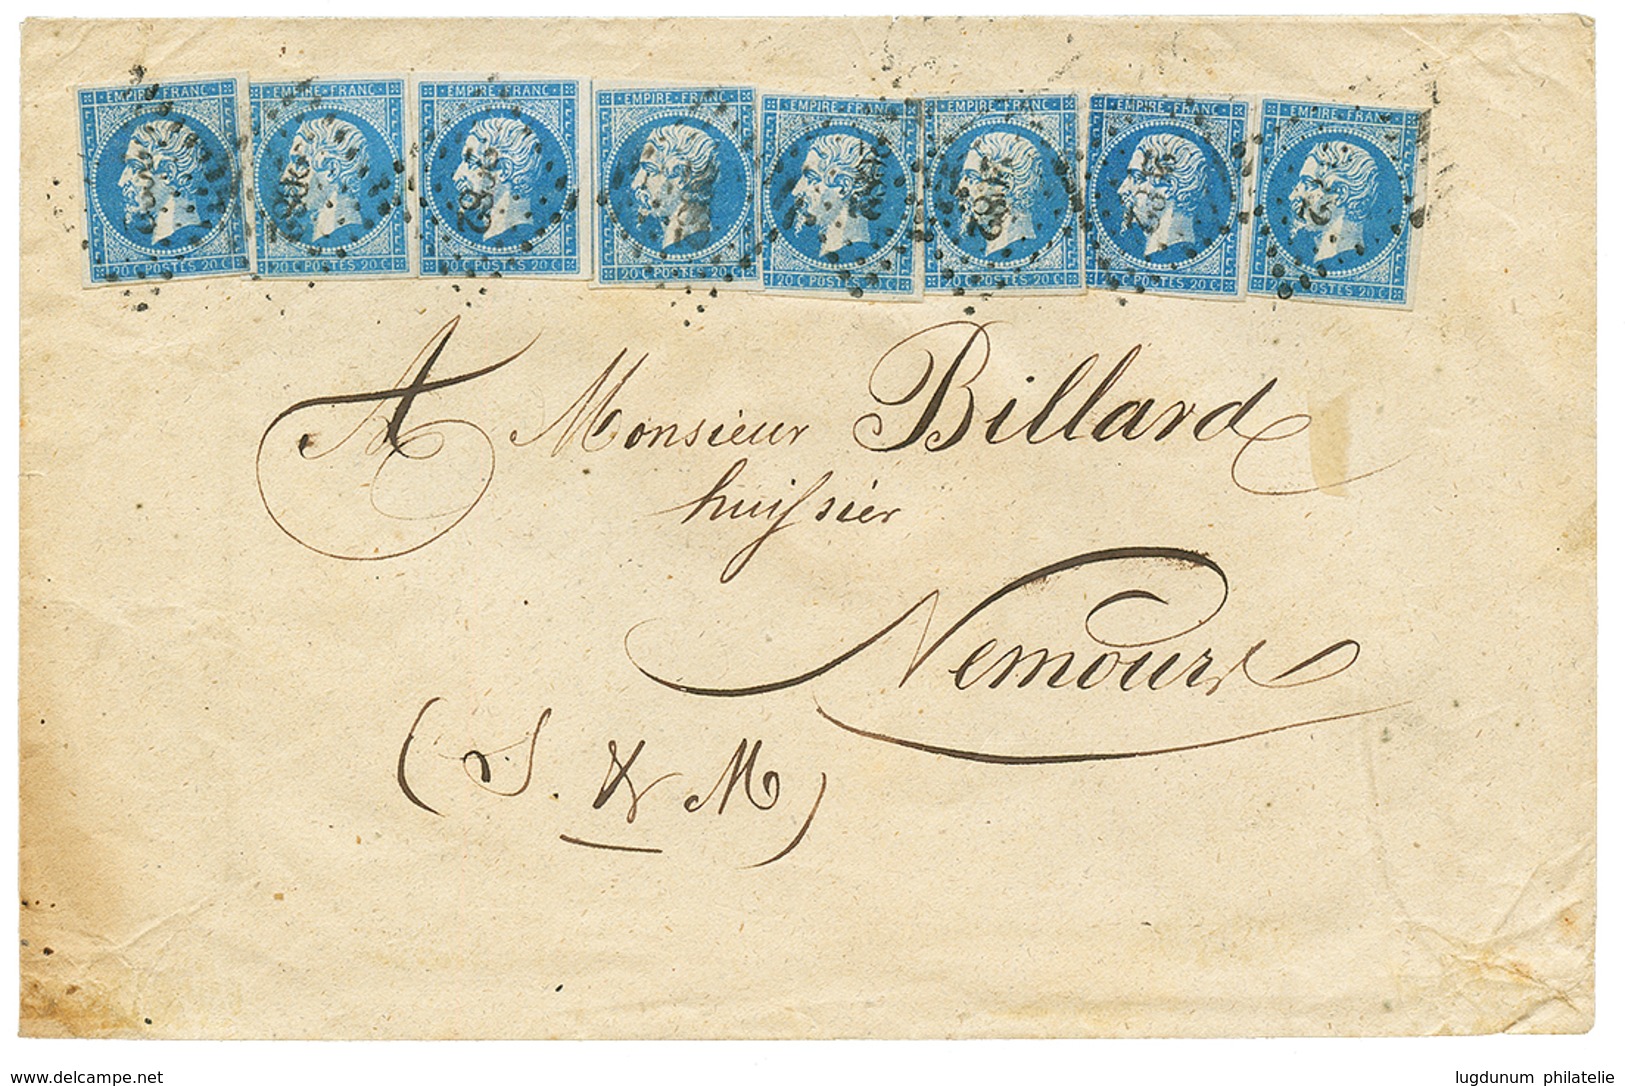 EMPIRE FRANC EMPIRE FRANC EMPIRE FRANC EMPIRE FRANC EMPIRE FRANC EMPIRE FRANC EMPIRE FRANC EMPIRE FRANC
20 C POSTES 20 C 20 C POSTES 20 C 20 C POSTES 20 C 20 C POSTES 20 C 20 C POSTES 20 C 20 C POSTES 20 C 20 C POSTES 20 C 20 C POSTES 20 C
A Monsieur Billard
huissier
Nemours
(S. & M)
delcampe.net
lugdunum philatelie